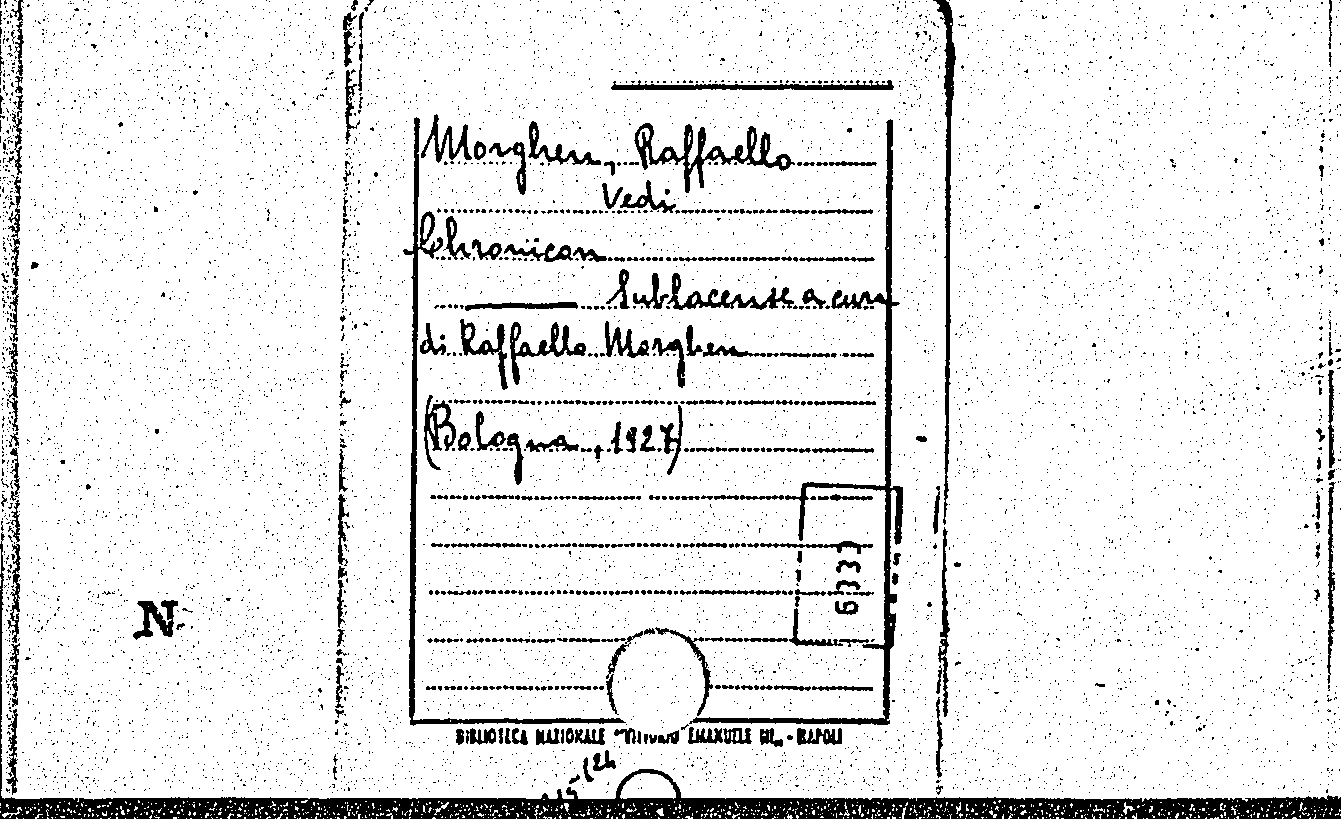 Morghen, Raffaello
Vedi
Chronicon
Sublacense a cura
di Raffaello Morghen
(Bologna, 1927)
6333
N
BIBLIOTECA NAZIONALE "VITTORIO EMANUELE III" - NAPOLI